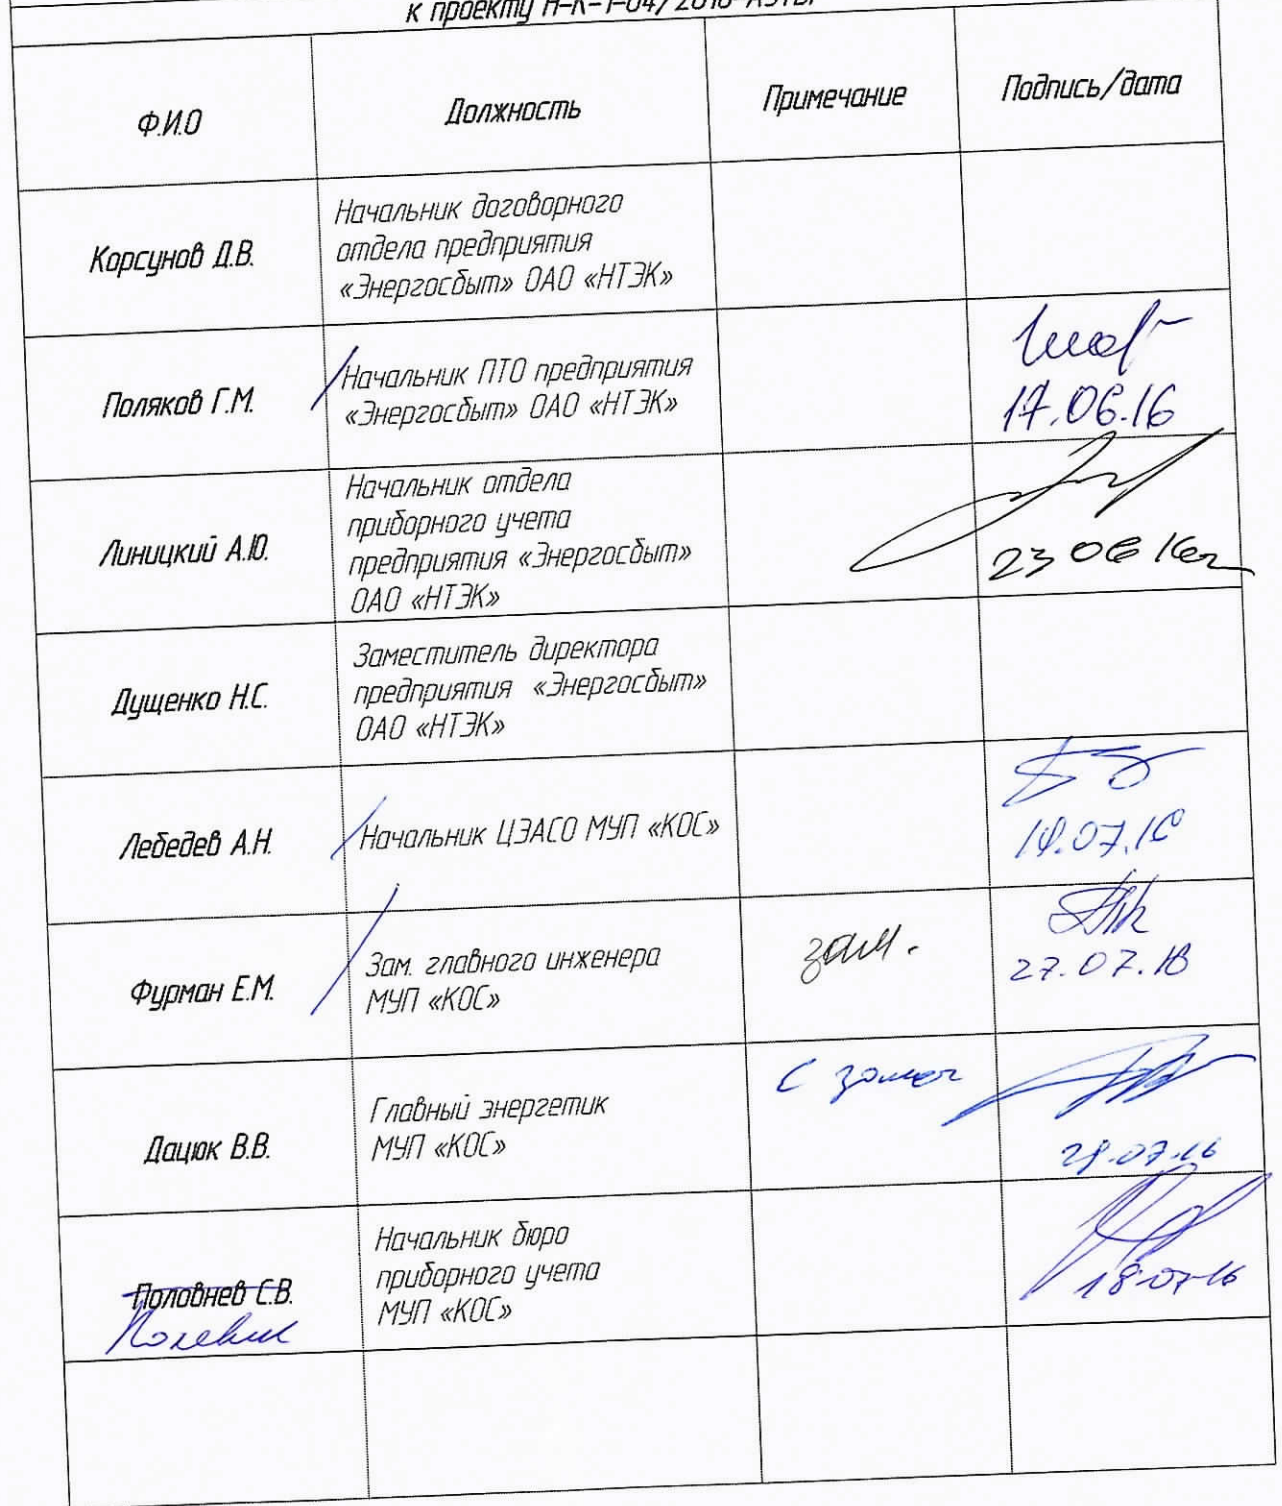 к проекту
Ф.И.О Должность Примечание Подпись/дата
Корсунов Д.В.
Начальник договорного
отдела предприятия
«Энергосбыт» ОАО «НТЭК»
Поляков Г.М.
Начальник ПТО предприятия
«Энергосбыт» ОАО «НТЭК»
17.06.16
Линицкий А.Ю.
Начальник отдела
приборного учета
предприятия «Энергосбыт»
ОАО «НТЭК»
23 06 16г
Дущенко Н.С.
Заместитель директора
предприятия «Энергосбыт»
ОАО «НТЭК»
Лебедев А.Н.
Начальник ЦЭАСО МУП «КОС»
Фурман Е.М.
Зам. главного инженера
МУП «КОС»
зам.
Дацюк В.В.
Главный энергетик
МУП «КОС»
с замеч
Половнев С.В.
Начальник бюро
приборного учета
МУП «КОС»
18.07.16